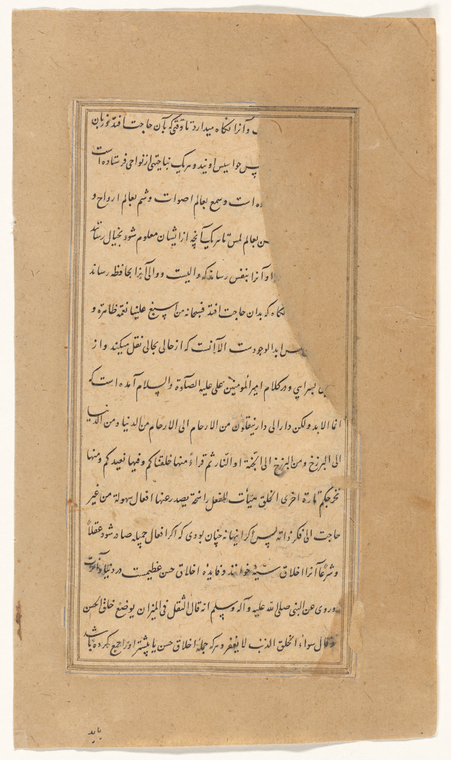 وآنرا نگاه میدارد تا وقتی که بآن حاجت افتد و زبان
پس جواسیس اویند و هر یک بناحیتی از نواحی فرستاده است
ده است و سمع بعالم اصوات و شم بعالم ارواح و
بعالم لمس تا هر یک آنچه از ایشان معلوم شود بخیال رساند
و آنرا بنفس رساند که والیست و والی آنرا بحافظه رساند
که بدان حاجت افتد فسبحانه من اسبغ علینا نعمه ظاهرة و
س ابد الوجودست الا آنست که از حالی بحالی نقل میکند و از
بسرایی و در کلام امیر المؤمنین علی علیه الصلوة والسلام آمده است که
انما الابد ولکن دار الی دار ینقلون من الارحام الی الارحام من الدنیا و من الدنیا
الی البرزخ و من البرزخ الی الجنة او النار ثم قراء منها خلقناکم و فیها نعیدکم و منها
نخرجکم تارة اخری الخلق للنفس راسخة یصدر عنها افعال بسهولة من غیر
حاجت الی فکر پس اگر چنان بودی که اگر افعال جمیله صادر شود عقلاً
و شرعاً آنرا اخلاق خوانند و فایده اخلاق حسن عظیمست در دنیا و آخرت
و روی عن النبی صلی الله علیه و آله و سلم انه قال اثقل فی المیزان یوضع خلق الحسن
و قال سواء الخلق الذنب لا یغفر و هر که جمله اخلاق حسن یا بیشتر او را جمع کرده باشد
باید